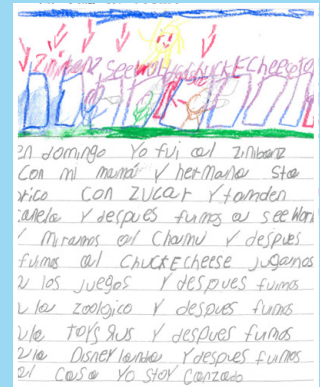 Zinibanz see worl chuckEcheese
En domingo Yo fui al Zinibanz
Con mi mamá Y hermana Sta
rico con ZUCar Y tamden
canela Y despues fuimos a see Worl
Y Miramos al Chamu Y despues
fuimos al ChuckEcheese Jugamos
a los Juegos Y despues fuimos
a la zoologico Y despues fuimos
a la TOYS Rus Y despues fuimos
a la Disneylandia Y despues fuimos
al Casa Yo stoy Canzado